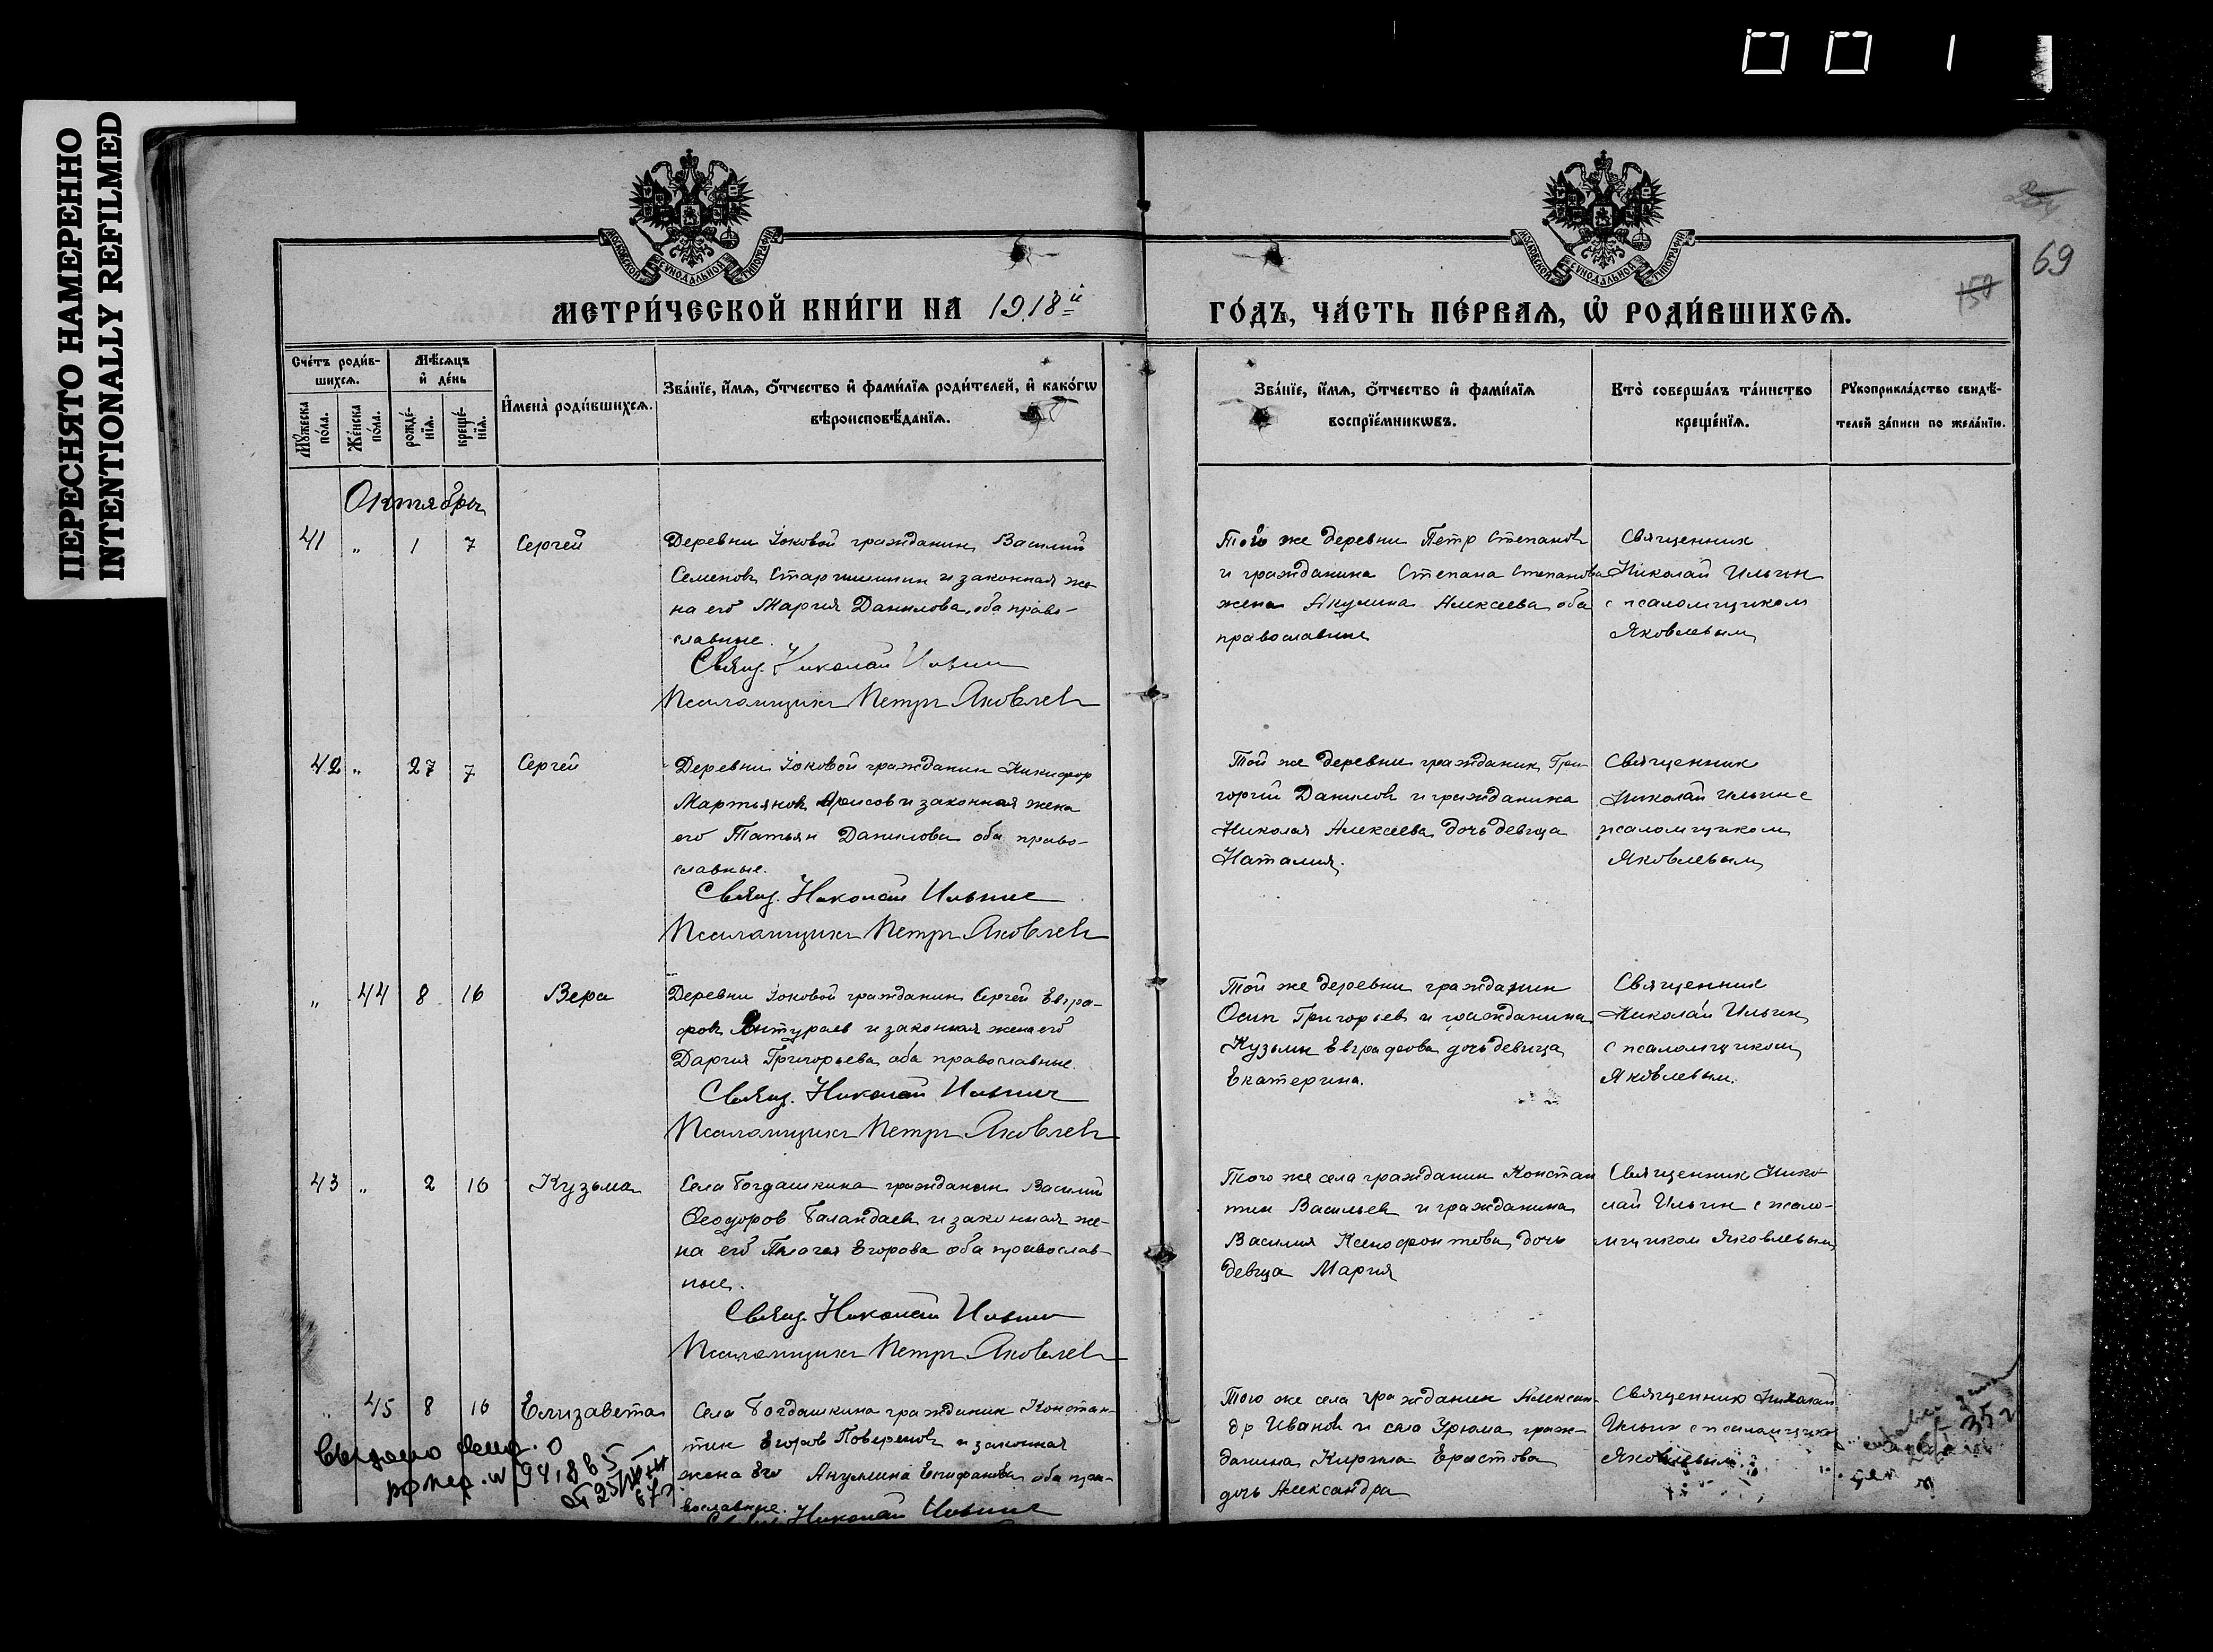 ПЕРЕСНЯТО НАМЕРЕННО
INTENTIONALLY REFILMED
001
69
МОСКОВСКОЙ СУНОДАЛЬНОЙ ТИПОГРАФІИ
МОСКОВСКОЙ СУНОДАЛЬНОЙ ТИПОГРАФІИ
МЕТРИ́ЧЕСКОЙ КНИ́ГИ НА 1918й
ГО́ДЪ, ЧА́СТЬ ПЕ́РВАѦ, Ѡ҆ РОДИ́ВШИХСѦ.
Сче́тъ роди́в-
шихсѧ.
Мѣ́сѧцъ
и҆ де́нь
Мꙋ́жеска
по́ла.
Же́нска
по́ла.
рожде́-
нїѧ.
креще́-
нїѧ.
И҆мена̀ роди́вшихсѧ.
Зва́нїе, и҆́мѧ, ѻ҆́тчество и҆ фами́лїѧ роди́телей, и҆ како́гѡ
вѣроисповѣ́данїѧ.
Зва́нїе, и҆́мѧ, ѻ҆́тчество и҆ фами́лїѧ
воспрїе́мникѡвъ.
Кто̀ соверша́лъ та́инство
креще́нїѧ.
Рꙋкоприкла́дство свидѣ́-
телей за́писи по жела́нїю.
Октябрь
41 " 1 7 Сергей
Деревни Іоковой гражданин Василий
Семенов и законная же-
на его Мария Данилова, оба право-
славные.
Свящ. Николай Ильин
Псаломщикъ Петръ Яковлев
Того же деревни Петр Степанов
и гражданина Степана Степанова
жена Акулина Алексеева оба
православные
Священник
Николай Ильин
с псаломщиком
Яковлевым
42 " 27 7 Сергей
Деревни Іоковой гражданин Никифор
Мартьянов и законная жена
его Татьян Данилова оба право-
славные.
Свящ. Николай Ильин
Псаломщикъ Петръ Яковлев
Той же деревни гражданин Гри-
горий Данилов и гражданина
Николая Алексеева дочь девица
Наталия.
Священник
Николай Ильин с
псаломщиком
Яковлевым
" 44 8 16 Вера
Деревни Іоковой гражданин Сергей Евгра-
фов Янтураев и законная жена его
Дария Григорьева оба православные.
Свящ. Николай Ильин
Псаломщикъ Петръ Яковлев
Той же деревни гражданин
Осип Григорьев и гражданина
Кузьмы Евграфова дочь девица
Екатерина.
Священник
Николай Ильин
с псаломщиком
Яковлевым.
43 " 2 16 Кузьма
Села Богдашкина гражданин Василий
Феодоров Баландаев и законная же-
на его Егорова оба православ-
ные.
Свящ. Николай Ильин
Псаломщикъ Петръ Яковлев
Того же села гражданин Констан
тин Васильев и гражданина
Василия Ксенофонтова дочь
девица Мария
Священник Нико-
лай Ильин с псало-
мщиком Яковлевым
" 45 8 16 Елизавета
Села Богдашкина гражданин Констан-
тин Егоров Поверенов и законная
жена его Акулина Епифанова оба пра-
вославные.
Николай Ильин
Того же села гражданин Алексан-
др Иванов и села Урюма граж-
данина Кирила Ерастова
дочь Александра
Священник Николай
Ильин с псаломщиком
Яковлевым.
Выдано